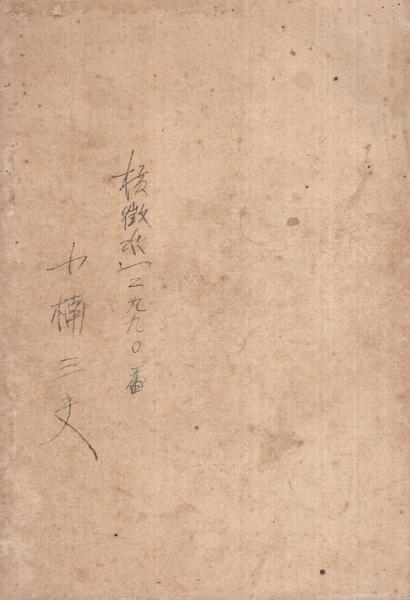 横徴水一二九九〇番
小楠三夫